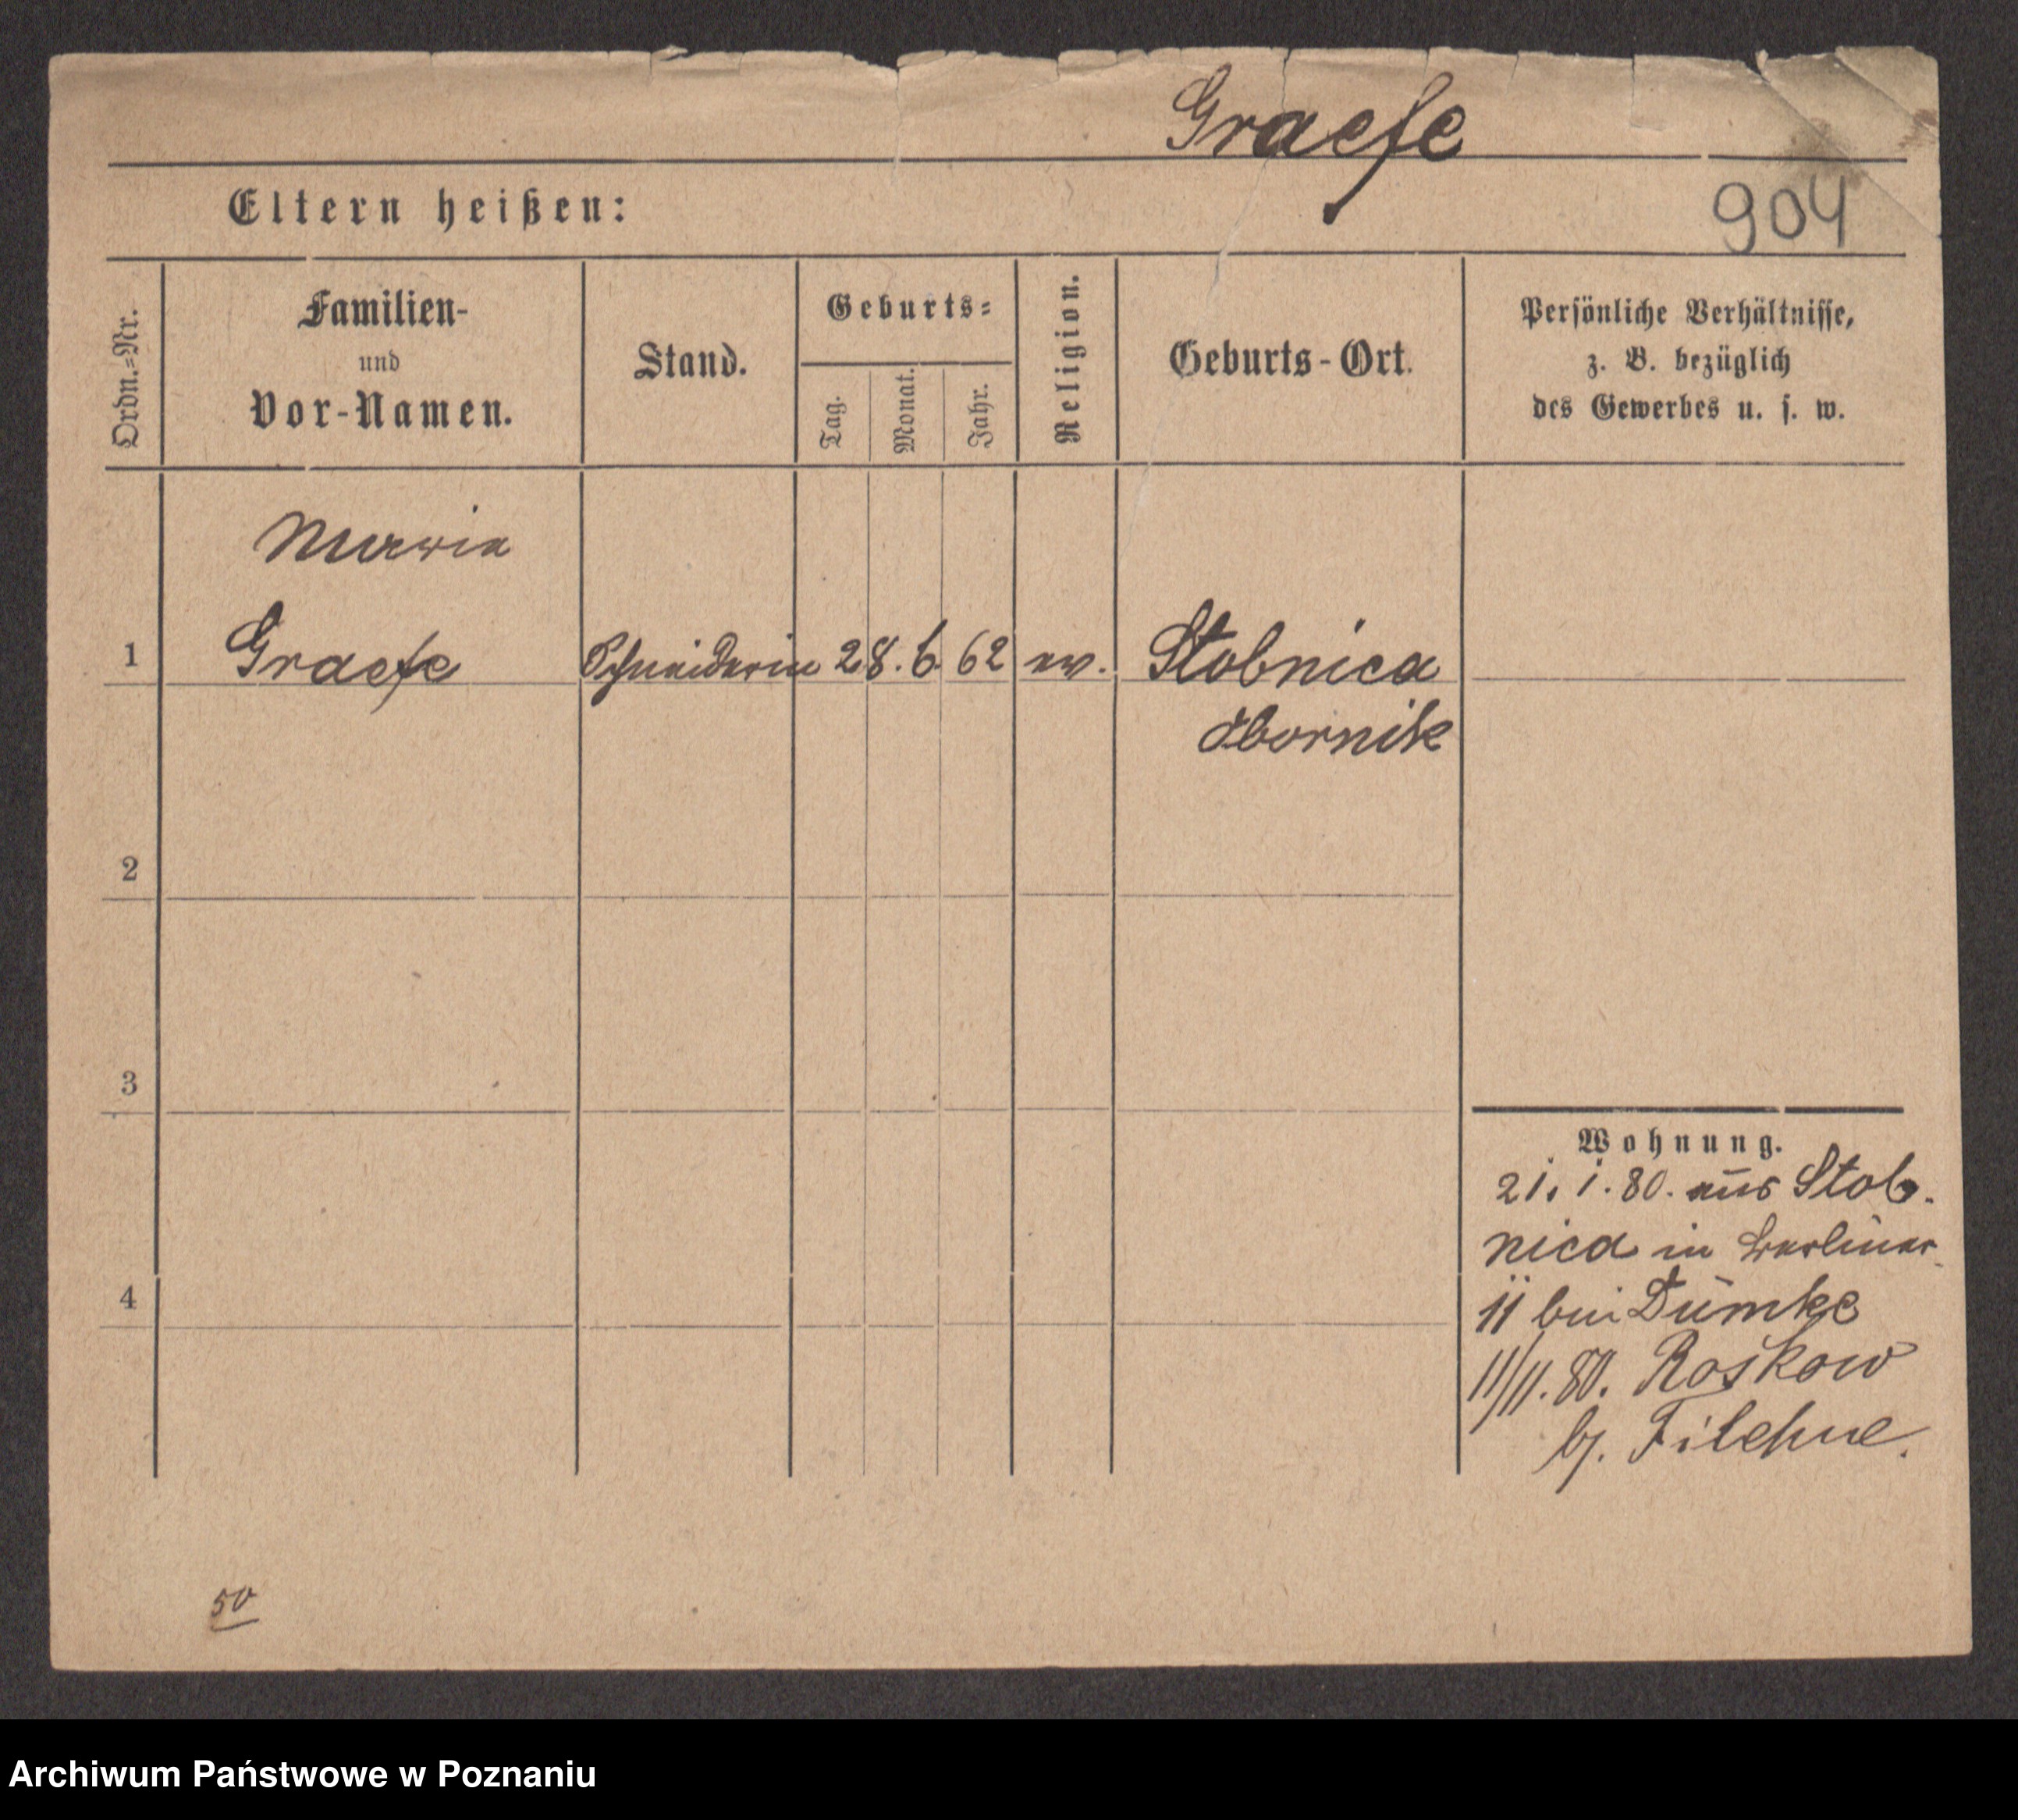 Graefe
Eltern heißen:
904
Ordn.=Nr.
Familien-
und
Vor-Namen.
Stand.
Geburts=
Tag.
Monat.
Jahr.
Religion.
Geburts-Ort.
Persönliche Verhältnisse,
z. B. bezüglich
des Gewerbes u. s. w.
Maria
1 Graefe Schneiderin 28. 6. 62 ev. Stobnica
Obornik
2
3
4
Wohnung.
21. 1. 80. aus Stob-
nica in Berliner
11 bei Dümke
11/11. 80. Roskow
b/. Filehne.
50
Archiwum Państwowe w Poznaniu